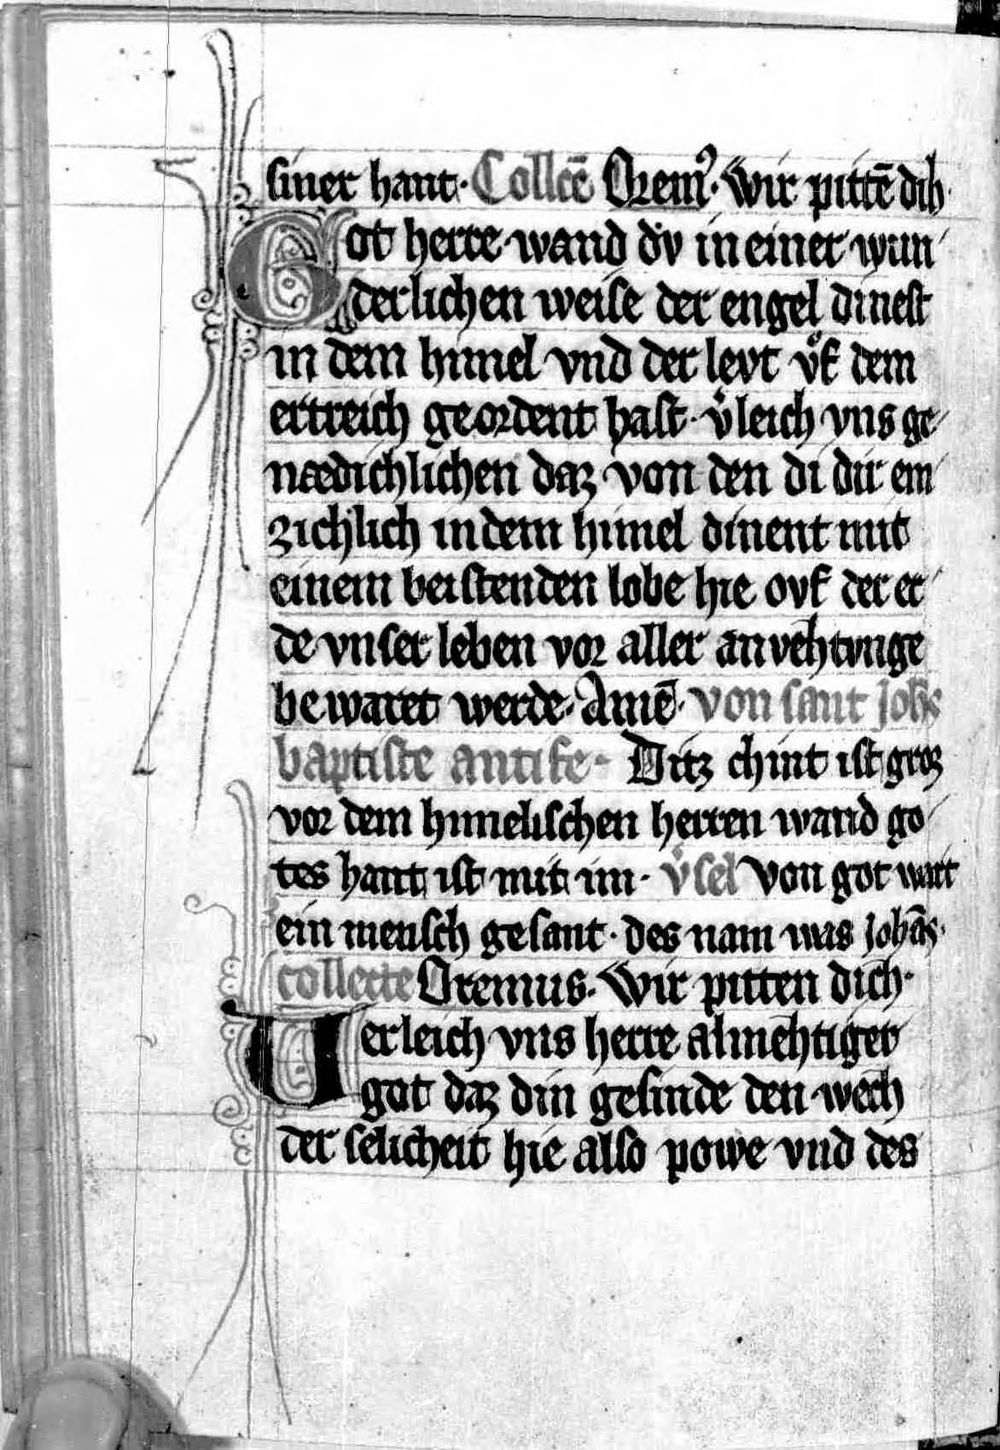 siner hant· Collcē Oremꝰ· Wir pittē dih·
Got herre wand dv in einer wun
derlichen weise der engel dinest
in dem himel vnd der levt vͦf dem
ertreich geordent hast· v̓leich vns ge
nædichlichen daz von den di dir em
zichlich in dem himel dinent mit
einem beistenden lobe hie ovf der er
de vnser leben vor aller anvehtvnge
bewaret werde· Amē· von sant Johs̄
baptiste antife· Ditz chint ist groz
vor dem himelischen herren wand go
tes hant ist mit im· v̓sel Von got wart
ein mensch gesant· des nam was Johās·
collecte Oremus· Wir pitten dich·
Verleich vns herre almehtiger
got daz din gesinde den wech
der selicheit hie also powe vnd des